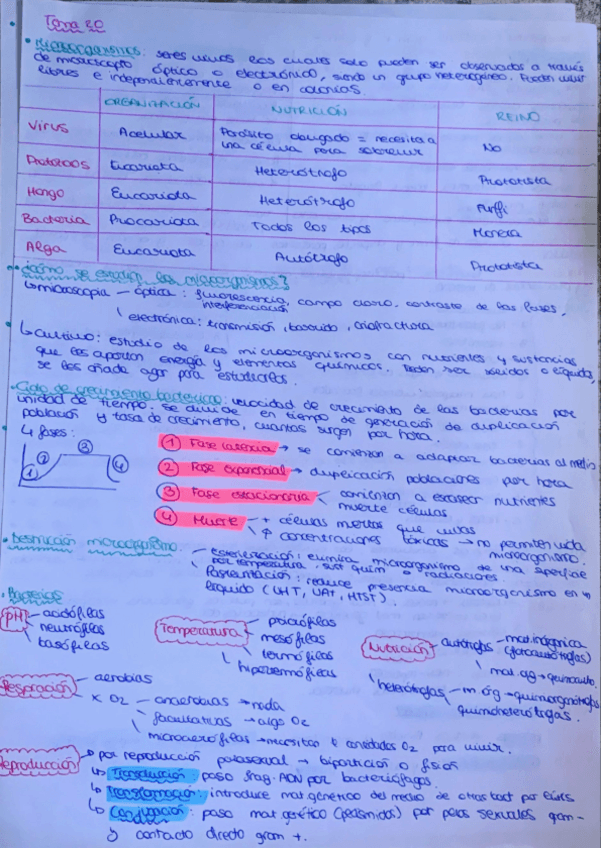 Tema 20
• Microorganismos: seres vivos los cuales solo pueden ser observados a través
de microscopio óptico o electrónico, siendo un grupo heterogéneo. Pueden vivir
libres e independientemente o en colonias.
ORGANIZACIÓN NUTRICIÓN REINO
Virus Acelular Parásito obligado = necesita a una célula para sobrevivir No
Protozoos Eucariota Heterótrofo Protoctista
Hongo Eucariota Heterótrofo Fungi
Bacteria Procariota Todos los tipos Monera
Alga Eucariota Autótrofo Protoctista
• ¿Cómo se estudian los microorganismos?
↳ microscopía – óptica: fluorescencia, campo claro, contraste de las fases,
interferenciación
electrónica: transmisión, barrido, criofractura
↳ Cultivo: estudio de los microorganismos con nutrientes y sustancias
que les aportan energía y elementos químicos. Pueden ser sólidos o líquidos,
se les añade agar para estudiarlos.
• Ciclo de crecimiento bacteriano: velocidad de crecimiento de las bacterias por
unidad de tiempo. se divide en tiempo de generación de duplicación
población y tasa de crecimiento, cuantas surgen por hora.
4 fases:
① ② ③ ④
① Fase latencia → se comienzan a adaptar bacterias al medio
② Fase exponencial → duplicación poblaciones por hora
③ Fase estacionaria comienzan a escasear nutrientes
muerte células
④ Muerte + células muertas que vivas
↑ concentraciones tóxicas → no permiten vida
microorganismo.
• Destrucción microorganismo: esterilización: elimina microorganismo de una superficie
por temperatura, sust quím o radiaciones.
Pasterización: reduce presencia microorganismo en
líquido (UHT, UAT, HTST).
• Bacterias
pH acidófilas
neutrófilas
basófilas
Temperatura psicrófilas
mesófilas
termófilas
hipertermófilas
Nutrición autótrofas – mat inorgánica
(fotoautótrofas)
mat. og → quimioauto.
heterótrofas – m óg → quimiorganótrofas
quimioheterótrofas.
Respiración aerobias
x O2 – anaerobias → nada
facultativas → algo O2
microaerófilas → necesitan ↓ cantidades O2 para vivir.
Reproducción → por reproducción → bipartición o fisión
↳ Transducción: paso frag. ADN por bacteriófagos.
↳ Transformación: introduce mat genético del medio de otras bact por
↳ Conjugación: paso mat genético (plásmidos) por pelos sexuales gram –
y contacto directo gram +.